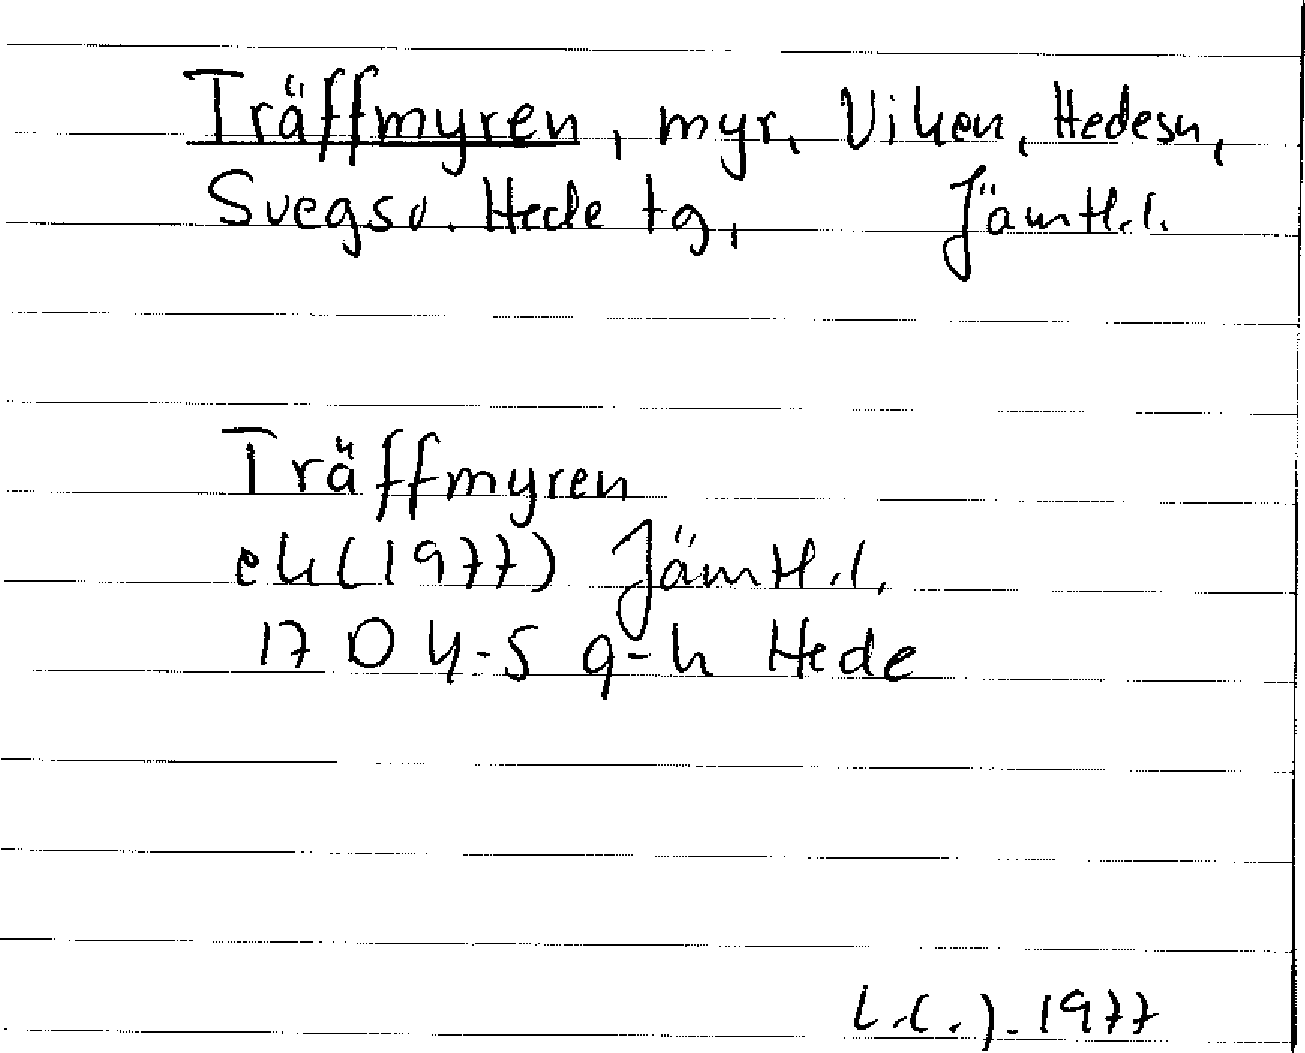 Träffmyren, myr, Viken, Hedesn,
Svegsd. Hede tg, Jämtl.l.
Träffmyren
ek(1977) Jämtl.l.
17 D 4-5 g-h Hede
L.(.).1977